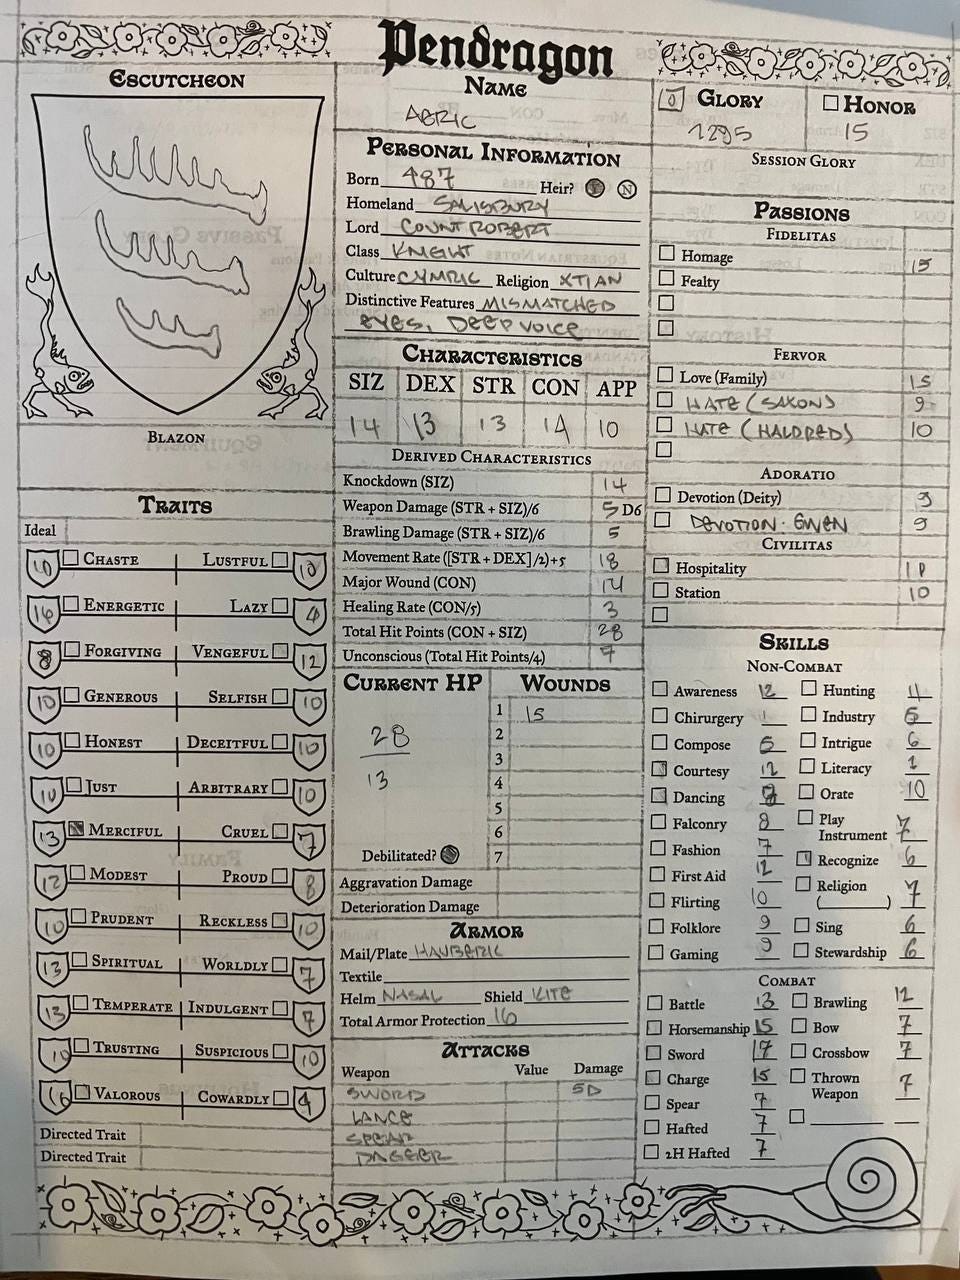 Pendragon
ESCUTCHEON
BLAZON
TRAITS
Ideal
10 CHASTE LUSTFUL 10
16 ENERGETIC LAZY 4
8 FORGIVING VENGEFUL 12
10 GENEROUS SELFISH 10
10 HONEST DECEITFUL 10
10 JUST ARBITRARY 10
13 MERCIFUL CRUEL 7
12 MODEST PROUD 8
10 PRUDENT RECKLESS 10
13 SPIRITUAL WORLDLY 7
13 TEMPERATE INDULGENT 7
10 TRUSTING SUSPICIOUS 10
16 VALOROUS COWARDLY 4
Directed Trait
Directed Trait
NAME
AERIC
PERSONAL INFORMATION
Born 487 Heir? Y N
Homeland SALISBURY
Lord COUNT ROBERT
Class KNIGHT
Culture CYMRIC Religion XTIAN
Distinctive Features MISMATCHED
EYES, DEEP VOICE
CHARACTERISTICS
SIZ DEX STR CON APP
14 13 13 14 10
DERIVED CHARACTERISTICS
Knockdown (SIZ) 14
Weapon Damage (STR + SIZ)/6 5 D6
Brawling Damage (STR + SIZ)/6 5
Movement Rate ([STR + DEX]/2)+5 18
Major Wound (CON) 14
Healing Rate (CON/5) 3
Total Hit Points (CON + SIZ) 28
Unconscious (Total Hit Points/4) 7
CURRENT HP
28
13
Debilitated?
WOUNDS
1 15
2
3
4
5
6
7
Aggravation Damage
Deterioration Damage
ARMOR
Mail/Plate HAUBERK
Textile
Helm NASAL Shield KITE
Total Armor Protection 16
ATTACKS
Weapon Value Damage
SWORD 5D
LANCE
SPEAR
DAGGER
GLORY
1295
HONOR
15
SESSION GLORY
PASSIONS
FIDELITAS
Homage 15
Fealty
FERVOR
Love (Family) 15
HATE (SAXONS) 9
HATE (HALDRED) 10
ADORATIO
Devotion (Deity) 9
DEVOTION - GWEN 9
CIVILITAS
Hospitality
Station 10
SKILLS
NON-COMBAT
Awareness 12
Chirurgery 1
Compose 5
Courtesy 12
Dancing
Falconry 8
Fashion 7
First Aid 12
Flirting 10
Folklore 9
Gaming 9
Hunting 11
Industry 5
Intrigue 6
Literacy 1
Orate 10
Play
Instrument 7
Recognize 6
Religion
(__________) 7
Sing 6
Stewardship 6
COMBAT
Battle 13
Horsemanship 15
Sword 17
Charge 15
Spear 7
Hafted 7
2H Hafted 7
Brawling 12
Bow 7
Crossbow 7
Thrown
Weapon 7